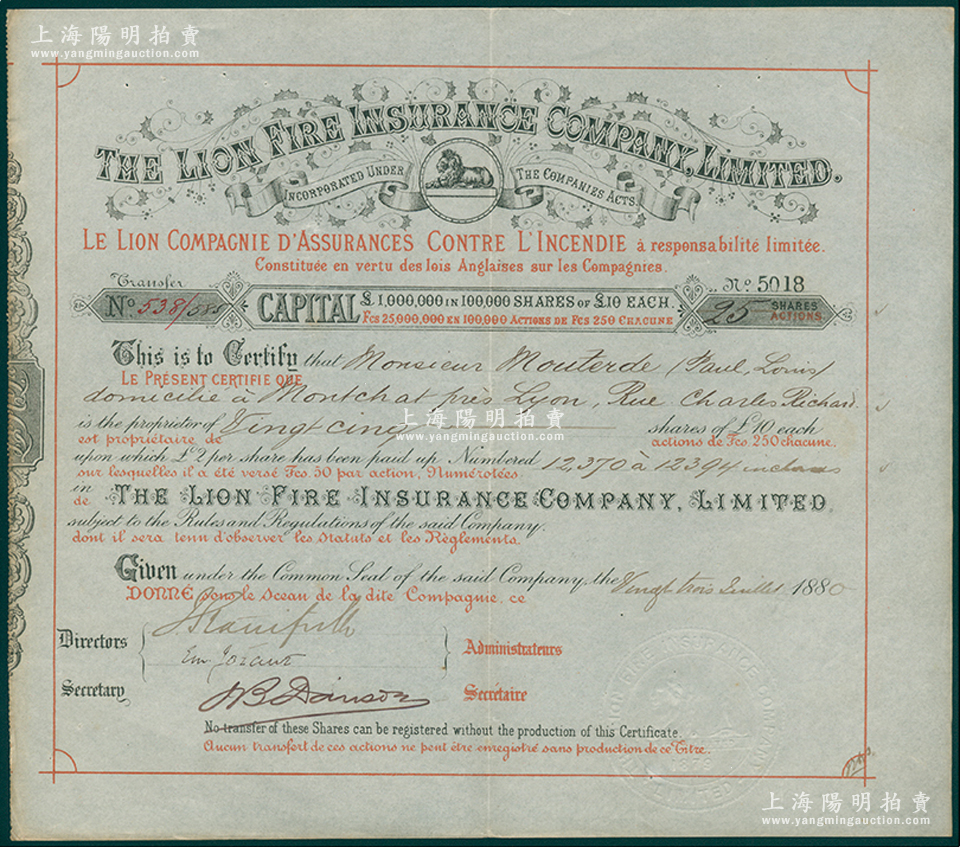 上海陽明拍賣
www.yangmingauction.com
上海陽明拍賣
www.yangmingauction.com
THE LION FIRE INSURANCE COMPANY, LIMITED.
INCORPORATED UNDER THE COMPANIES ACTS.
LE LION COMPAGNIE D'ASSURANCES CONTRE L'INCENDIE à responsabilité limitée.
Constituée en vertu des lois Anglaises sur les Compagnies.
Transfer
No 538/585
CAPITAL £1,000,000 IN 100,000 SHARES OF £10 EACH.
Fcs 25,000,000 EN 100,000 ACTIONS DE Fcs 250 CHACUNE
No. 5018
25 SHARES
ACTIONS.
This is to Certify that Monsieur Mouterde (Paul, Louis)
LE PRÉSENT CERTIFIE QUE
domicilié à Montchat près Lyon, Rue Charles Richard
is the proprietor of Vingt cinq shares of £10 each
est propriétaire de actions de Fcs. 250 chacune,
upon which £2 per share has been paid up Numbered 12,370 à 12394 inclus
sur lesquelles il a été versé Fcs. 50 par action, Numérotées
in THE LION FIRE INSURANCE COMPANY, LIMITED,
de
subject to the Rules and Regulations of the said Company.
dont il sera tenu d'observer les Statuts et les Règlements.
上海陽明拍賣
www.yangmingauction.com
Given under the Common Seal of the said Company, the Vingt trois Juillet 1880
DONNÉ sous le Sceau de la dite Compagnie, ce
Directors
Administrateurs
Secretary
Secrétaire
No transfer of these Shares can be registered without the production of this Certificate.
Aucun transfert de ces actions ne peut être enregistré sans production de ce Titre.
上海陽明拍賣
www.yangmingauction.com